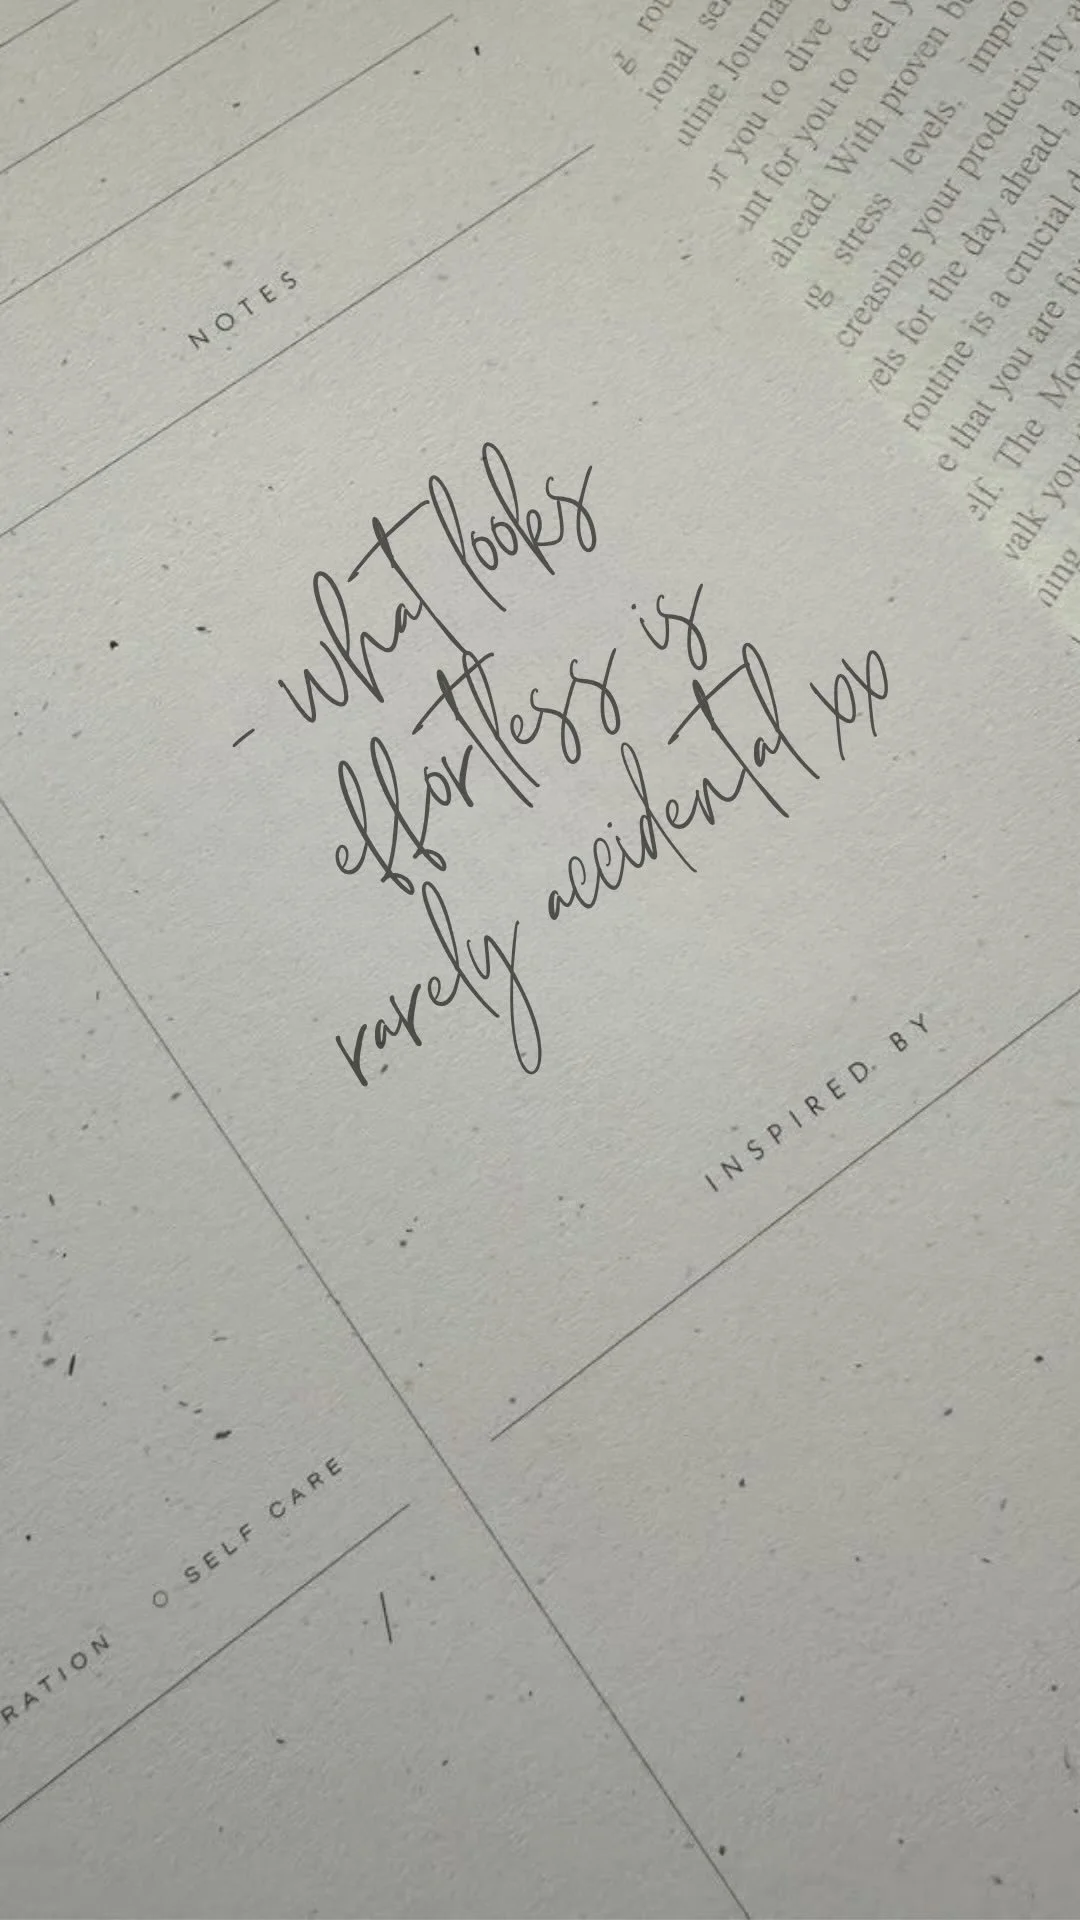 NOTES
- what looks
effortless is
rarely accidental xx
INSPIRED BY
SELF CARE
RATION
ional
utine Journa
you to dive
for you to feel
ahead. With proven
stress levels, impro
creasing your productivity
els for the day ahead, a
routine is a crucial
e that you are
elf. The Mor
valk you
ning